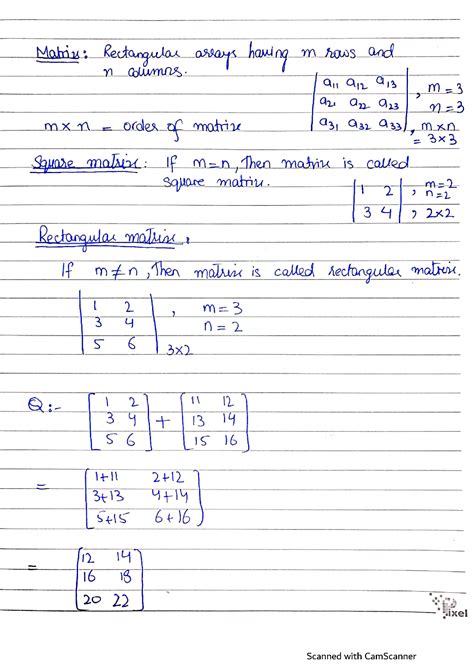 Matrix: Rectangular arrays having m rows and
n columns.
| a11 a12 a13 |
| a21 a22 a23 | , m = 3
n = 3
| a31 a32 a33 | , m×n
= 3×3
m × n = order of matrix
Square matrix: If m=n, Then matrix is called
square matrix.
| 1 2 | , m=2
n=2
| 3 4 | , 2×2
Rectangular matrix,
If m ≠ n, Then matrix is called rectangular matrix.
| 1 2 | , m = 3
| 3 4 | n = 2
| 5 6 | 3×2
Q:- [ 1 2 ] + [ 11 12 ]
[ 3 4 ] [ 13 14 ]
[ 5 6 ] [ 15 16 ]
= [ 1+11 2+12 ]
[ 3+13 4+14 ]
[ 5+15 6+16 ]
= [ 12 14 ]
[ 16 18 ]
[ 20 22 ]
Pixel
Scanned with CamScanner